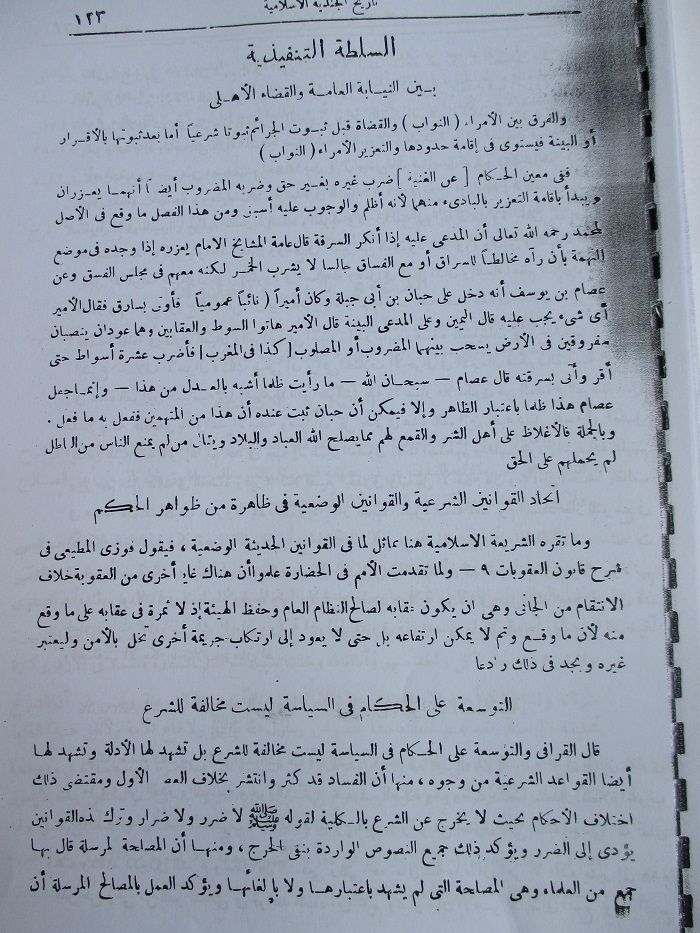 تاريخ الجندية الاسلامية
١٢٣
السلطة التنفيذية
بين النيابة العامة والقضاء الأهلى
والفرق بين الأمراء ( النواب ) والقضاة قبل ثبوت الجرائم ثبوتا شرعياً أما بعد ثبوتها بالاقرار
أو البينة فيستوى فى إقامة حدودها والتعزير الأمراء ( النواب )
ففى معين الحكام [ عن الغنية ] ضرب غيره بغير حق وضربه المضروب أيضاً أنهما يعزران
ويبدأ باقامة التعزير بالبادىء منهما لأنه أظلم والوجوب عليه أسبق ومن هذا الفصل ما وقع فى الأصل
لمحمد رحمه الله تعالى أن المدعى عليه إذا أنكر السرقة قال عامة المشايخ الامام يعزره إذا وجده فى موضع
التهمة بأن رآه مخالطاً للسراق أو مع الفساق جالسا لا يشرب الخمر لكنه معهم فى مجلس الفسق وعن
عصام بن يوسف أنه دخل على حبان بن أبى جبلة وكان أميراً ( نائباً عمومياً فأوتى بسارق فقال الأمير
أى شىء يجب عليه قال اليمين وعلى المدعى البينة قال الأمير هاتوا السوط والعقابين وهما عودان ينصبان
مفروقين فى الأرض يسحب بينهما المضروب أو المصلوب [ كذا فى المغرب ] فأضرب عشرة أسواط حتى
أقر وأتى بسرقته قال عصام — سبحان الله — ما رأيت ظلما أشبه بالعدل من هذا — وإنما جعل
عصام هذا ظلما باعتبار الظاهر وإلا فيمكن أن حبان ثبت عنده أن هذا من المتهمين ففعل به ما فعل .
وبالجملة فالأغلاظ على أهل الشر والقمع لهم مما يصلح الله العباد والبلاد ويقال من لم يمنع الناس من الباطل
لم يحملهم على الحق
اتحاد القوانين الشرعية والقوانين الوضعية فى ظاهرة من ظواهر الحكم
وما تقره الشريعة الاسلامية هنا مماثل لما فى القوانين الحديثة الوضعية ، فيقول فوزى المطيعى فى
شرح قانون العقوبات ٩ — ولما تقدمت الأمم فى الحضارة علموا أن هناك غاية أخرى من العقوبة خلاف
الانتقام من الجانى وهى ان يكون عقابه لصالح النظام العام وحفظ الهيئة إذ لا ثمرة فى عقابه على ما وقع
منه لأن ما وقع وتم لا يمكن ارتفاعه بل حتى لا يعود إلى ارتكاب جريمة أخرى تخل بالأمن وليعتبر
غيره ويجد فى ذلك رادعا
التوسعة على الحكام فى السياسة ليست مخالفة للشرع
قال القرافى والتوسعة على الحكام فى السياسة ليست مخالفة للشرع بل تشهد لها الأدلة وتشهد لها
أيضا القواعد الشرعية من وجوه ، منها أن الفساد قد كثر وانتشر بخلاف العصر الأول ومقتضى ذلك
اختلاف الأحكام بحيث لا يخرج عن الشرع بالكلية لقوله ﷺ لا ضرر ولا ضرار وترك هذه القوانين
يؤدى إلى الضرر ويؤكد ذلك جميع النصوص الواردة بنفى الحرج ، ومنها أن المصلحة المرسلة قال بها
جمع من العلماء وهى المصلحة التى لم يشهد باعتبارها ولا بالغائها ويؤكد العمل بالمصالح المرسلة أن